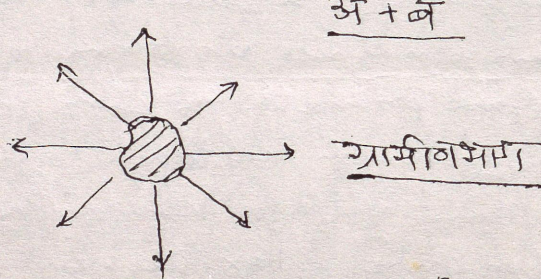 अ + ब
ग्रामीणभाग